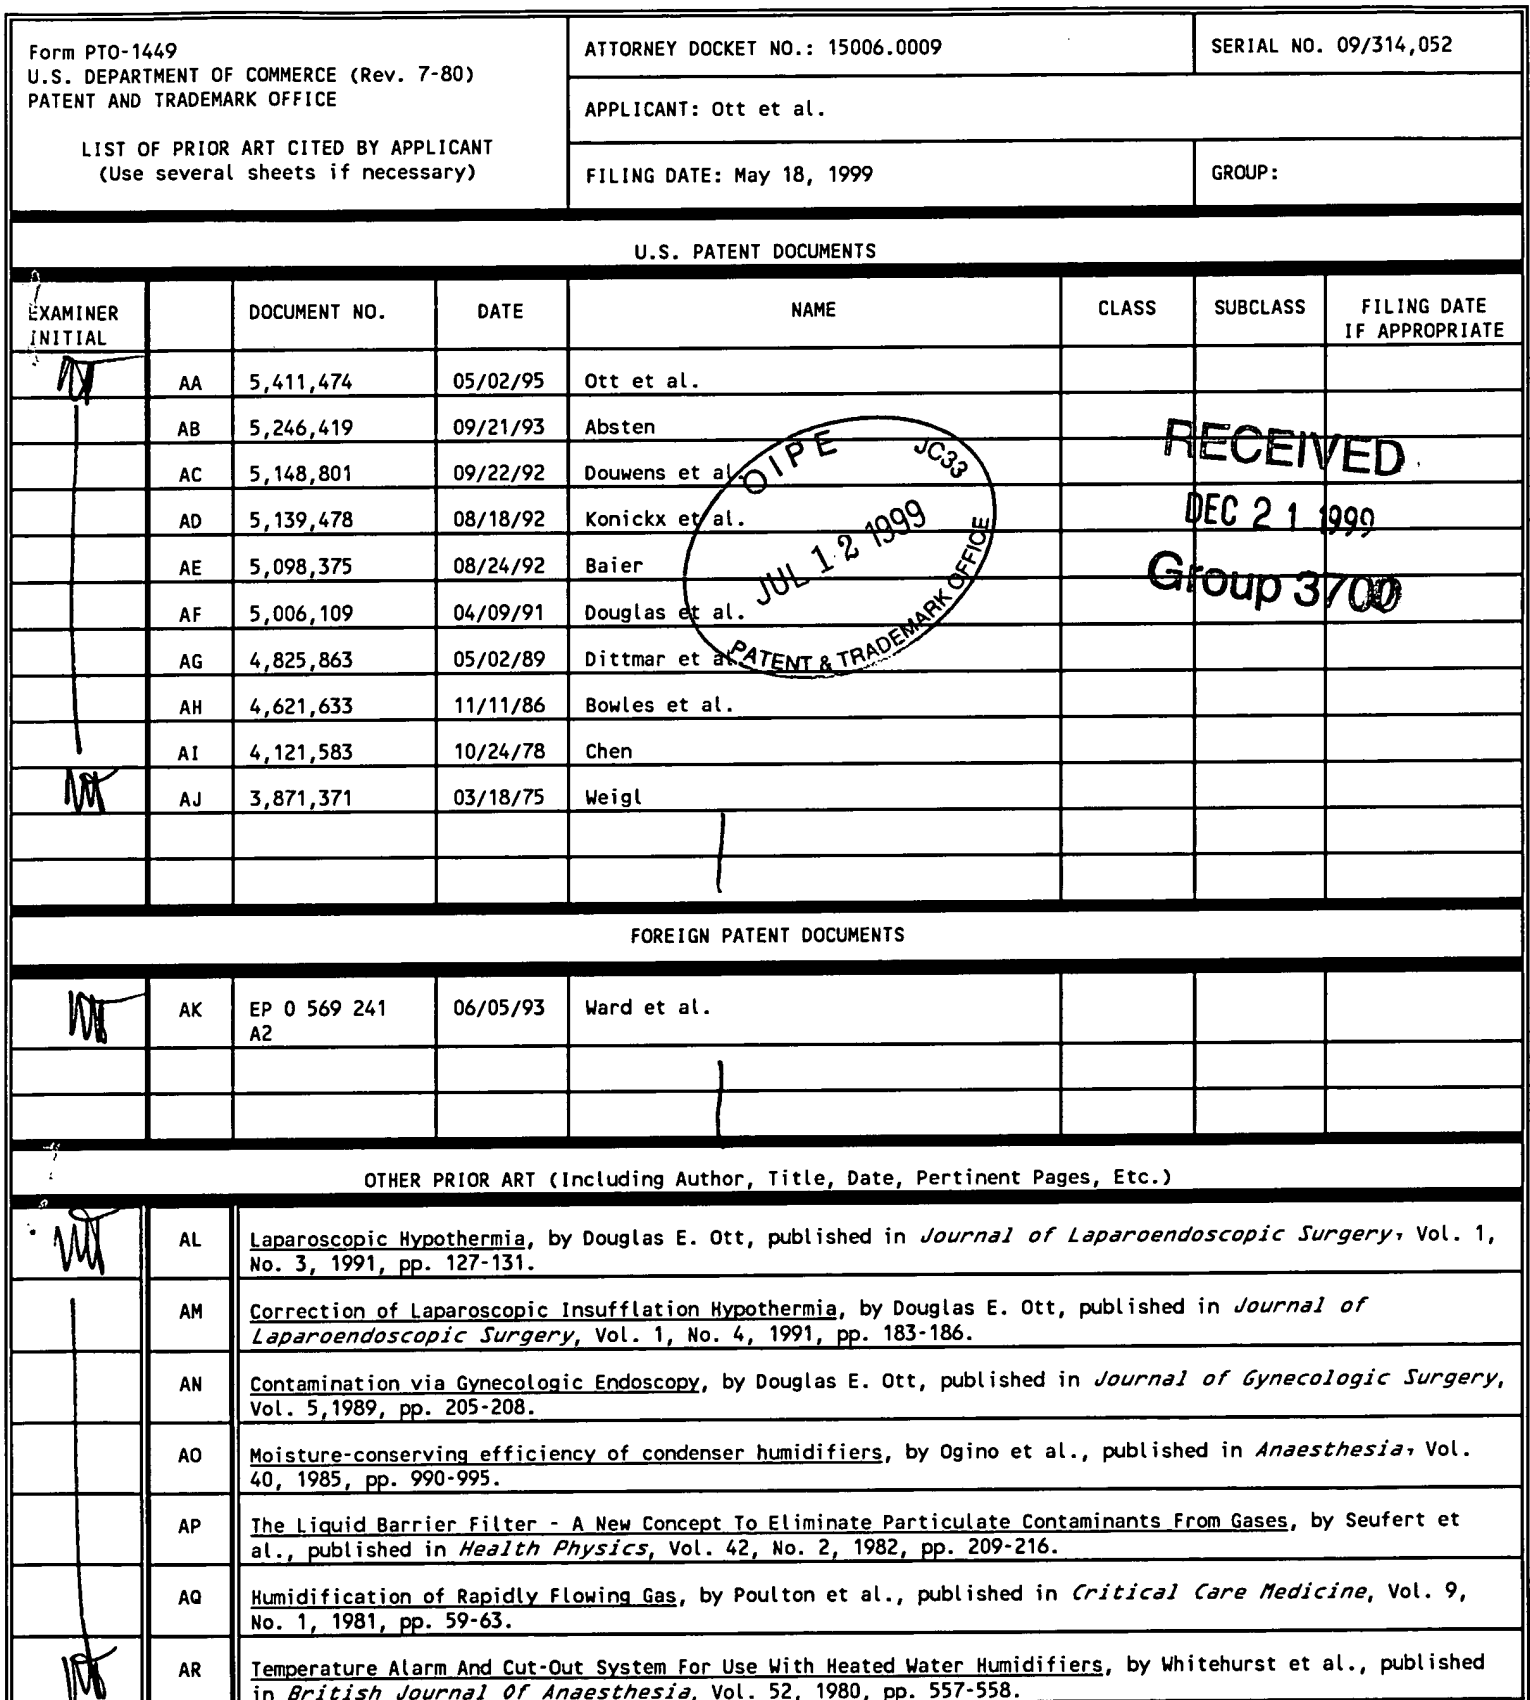 Form PTO-1449
U.S. DEPARTMENT OF COMMERCE (Rev. 7-80)
PATENT AND TRADEMARK OFFICE
LIST OF PRIOR ART CITED BY APPLICANT
(Use several sheets if necessary)
ATTORNEY DOCKET NO.: 15006.0009
SERIAL NO. 09/314,052
APPLICANT: Ott et al.
FILING DATE: May 18, 1999
GROUP:
U.S. PATENT DOCUMENTS
EXAMINER INITIAL DOCUMENT NO. DATE NAME CLASS SUBCLASS FILING DATE IF APPROPRIATE
AA 5,411,474 05/02/95 Ott et al.
AB 5,246,419 09/21/93 Absten
AC 5,148,801 09/22/92 Douwens et al.
AD 5,139,478 08/18/92 Konickx et al.
AE 5,098,375 08/24/92 Baier
AF 5,006,109 04/09/91 Douglas et al.
AG 4,825,863 05/02/89 Dittmar et al.
AH 4,621,633 11/11/86 Bowles et al.
AI 4,121,583 10/24/78 Chen
AJ 3,871,371 03/18/75 Weigl
OIPE JC33
JUL 12 1999
PATENT & TRADEMARK OFFICE
RECEIVED
DEC 21 1999
Group 3700
FOREIGN PATENT DOCUMENTS
AK EP 0 569 241 06/05/93 Ward et al.
A2
OTHER PRIOR ART (Including Author, Title, Date, Pertinent Pages, Etc.)
AL Laparoscopic Hypothermia, by Douglas E. Ott, published in Journal of Laparoendoscopic Surgery, Vol. 1,
No. 3, 1991, pp. 127-131.
AM Correction of Laparoscopic Insufflation Hypothermia, by Douglas E. Ott, published in Journal of
Laparoendoscopic Surgery, Vol. 1, No. 4, 1991, pp. 183-186.
AN Contamination via Gynecologic Endoscopy, by Douglas E. Ott, published in Journal of Gynecologic Surgery,
Vol. 5,1989, pp. 205-208.
AO Moisture-conserving efficiency of condenser humidifiers, by Ogino et al., published in Anaesthesia, Vol.
40, 1985, pp. 990-995.
AP The Liquid Barrier Filter - A New Concept To Eliminate Particulate Contaminants From Gases, by Seufert et
al., published in Health Physics, Vol. 42, No. 2, 1982, pp. 209-216.
AQ Humidification of Rapidly Flowing Gas, by Poulton et al., published in Critical Care Medicine, Vol. 9,
No. 1, 1981, pp. 59-63.
AR Temperature Alarm And Cut-Out System For Use With Heated Water Humidifiers, by Whitehurst et al., published
in British Journal Of Anaesthesia, Vol. 52, 1980, pp. 557-558.